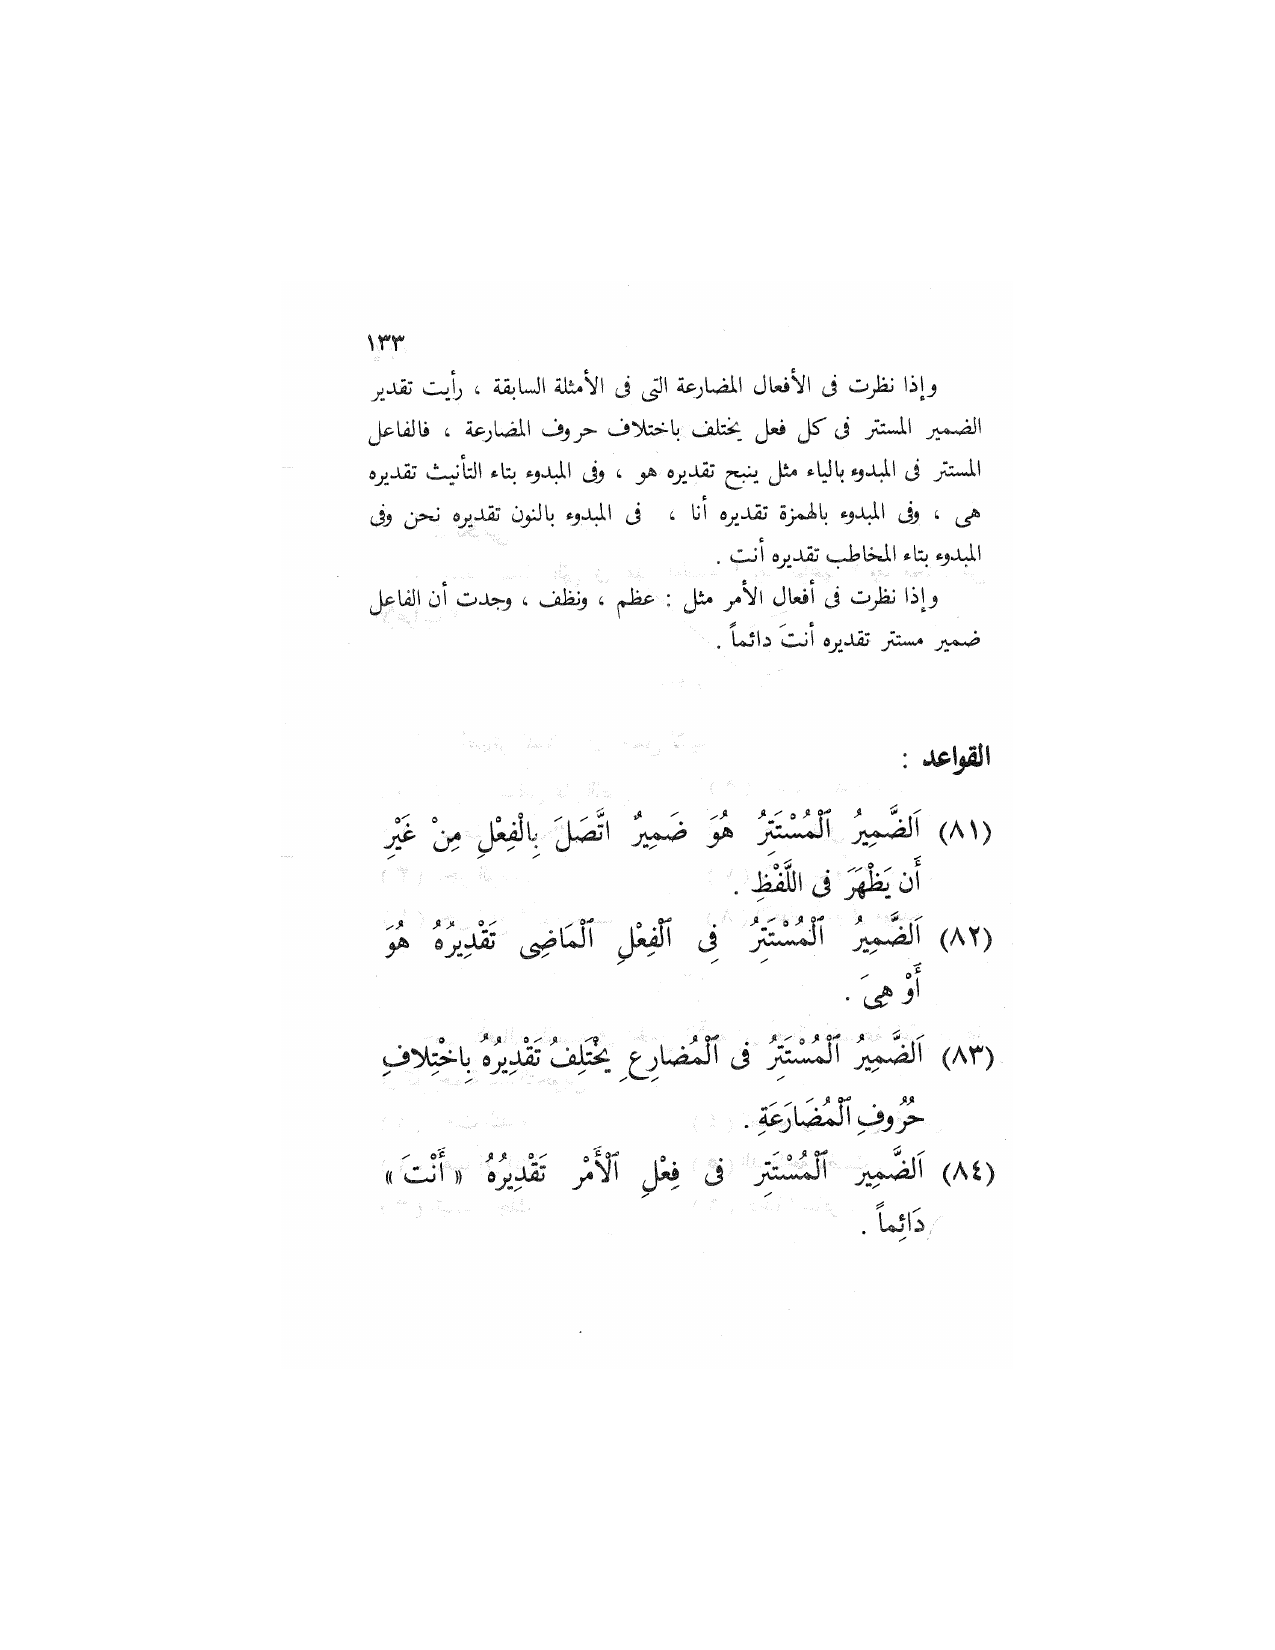 ١٣٣
وإذا نظرت فى الأفعال المضارعة التى فى الأمثلة السابقة ، رأيت تقدير
الضمير المستتر فى كل فعل يختلف باختلاف حروف المضارعة ، فالفاعل
المستتر فى المبدوء بالياء مثل ينبح تقديره هو ، وفى المبدوء بتاء التأنيث تقديره
هى ، وفى المبدوء بالهمزة تقديره أنا ، فى المبدوء بالنون تقديره نحن وفى
المبدوء بتاء المخاطب تقديره أنت .
وإذا نظرت فى أفعال الأمر مثل : عظم ، ونظف ، وجدت أن الفاعل
ضمير مستتر تقديره أنتَ دائماً .
القواعد :
(٨١) اَلضَّمِيرُ ٱلْمُسْتَتِرُ هُوَ ضَمِيرٌ اتَّصَلَ بِالْفِعْلِ مِنْ غَيْرِ
أَن يَظْهَرَ فى اللَّفْظِ .
(٨٢) اَلضَّمِيرُ ٱلْمُسْتَتِرُ فِى ٱلْفِعْلِ ٱلْمَاضِى تَقْدِيرُهُ هُوَ
أَوْ هِىَ .
(٨٣) اَلضَّمِيرُ ٱلْمُسْتَتِرُ فى ٱلْمُضارِعِ يَخْتَلِفُ تَقْدِيرُهُ بِاخْتِلافِ
حُرُوفِ ٱلْمُضَارَعَةِ .
(٨٤) اَلضَّمِير ٱلْمُسْتَتِر فى فِعْلِ ٱلْأَمْر تَقْدِيرُهُ « أَنْتَ »
دَائِماً .